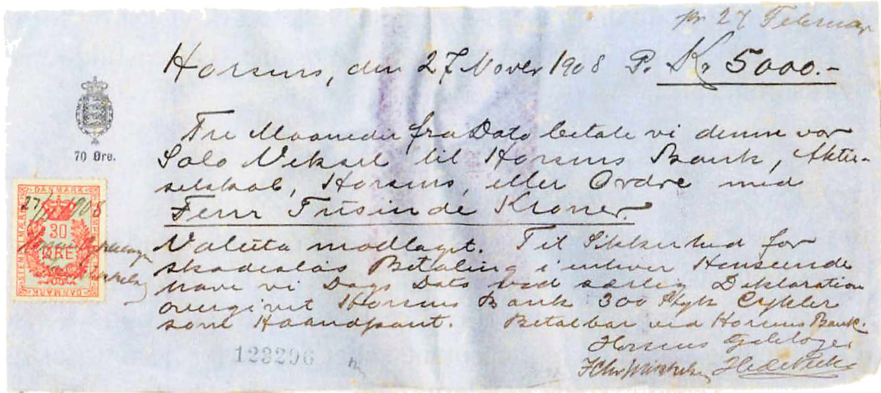 pr 27 Februar
Horsens, den 27 Novbr 1908 P. Kr 5000.-
70 Øre.
Tre Maaneder fra Dato betale vi denne vor
Solo Veksel til Horsens Bank, Aktie-
selskab, Horsens, eller Ordre med
Fem Tusinde Kroner.
Valuta modtaget. Til Sikkerhed for
skadesløs Betaling i enhver Henseende
have vi Dags Dato ved særlig Deklaration
overgivet Horsens Bank 300 Styk Cykler
som Haandpant. Betalbar ved Horsens Bank.
DANMARK
27 1908
30
ØRE
DANMARK
123296
Horsens